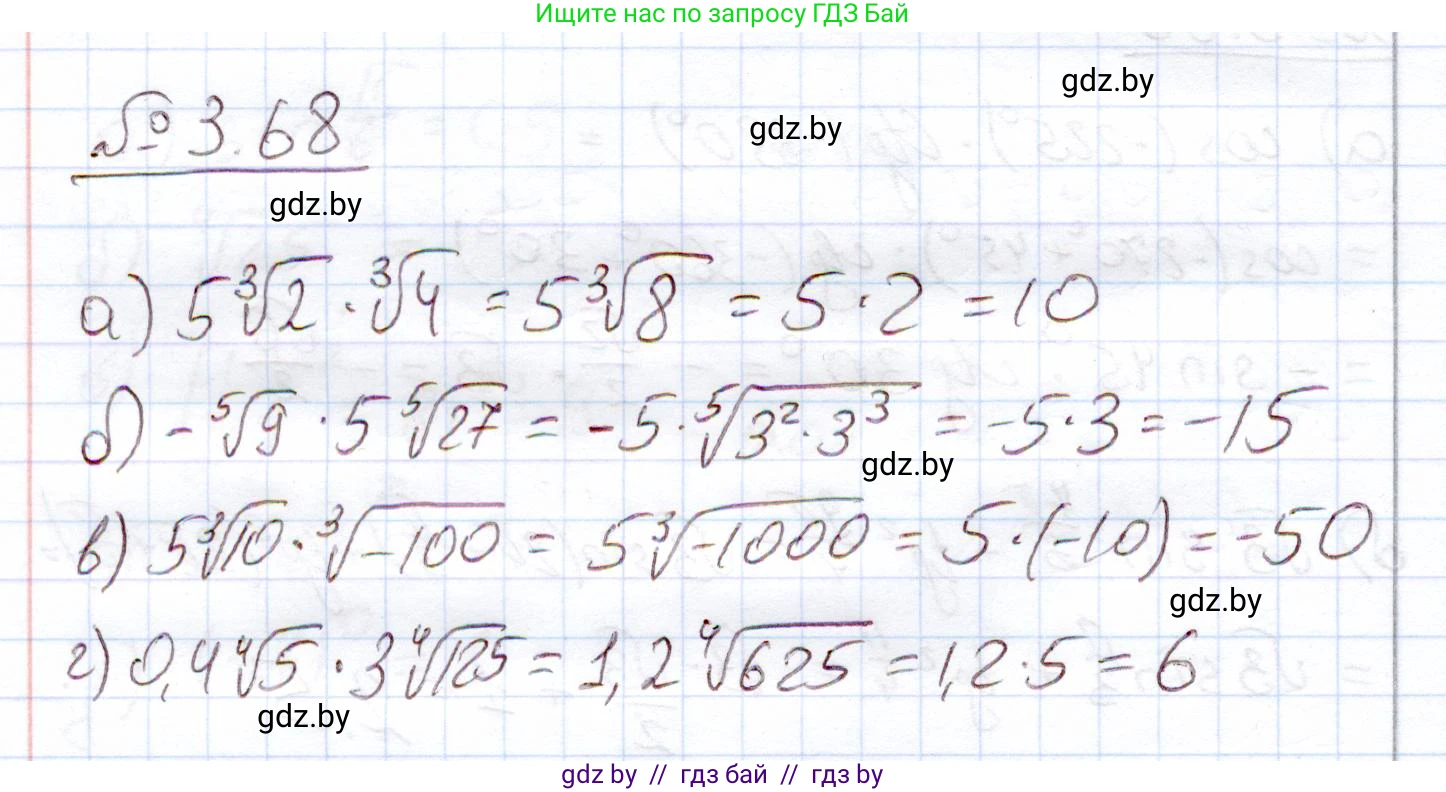 Ищите нас по запросу ГДЗ Бай
gdz.by
gdz.by
№ 3.68
gdz.by
а) 5∛2 · ∛4 = 5∛8 = 5·2 = 10
б) - ⁵√9 · 5 ⁵√27 = -5·⁵√(3²·3³) = -5·3 = -15
gdz.by
в) 5∛10 · ∛-100 = 5∛-1000 = 5·(-10) = -50
gdz.by
г) 0,4 ⁴√5 · 3 ⁴√125 = 1,2 ⁴√625 = 1,2·5 = 6
gdz.by
gdz by // гдз бай // гдз by